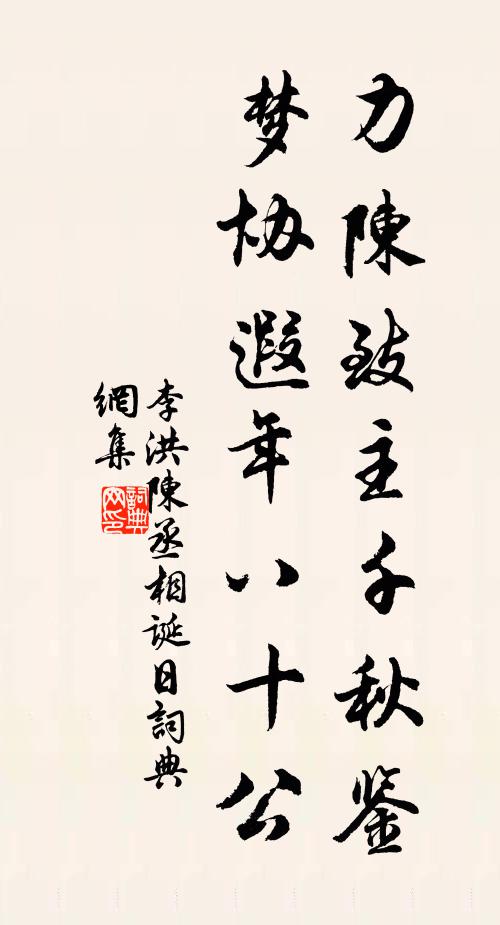 力陳致主千秋鉴
梦协遐年八十公
李洪陳丞相诞日詞典
網集
詞典
网印